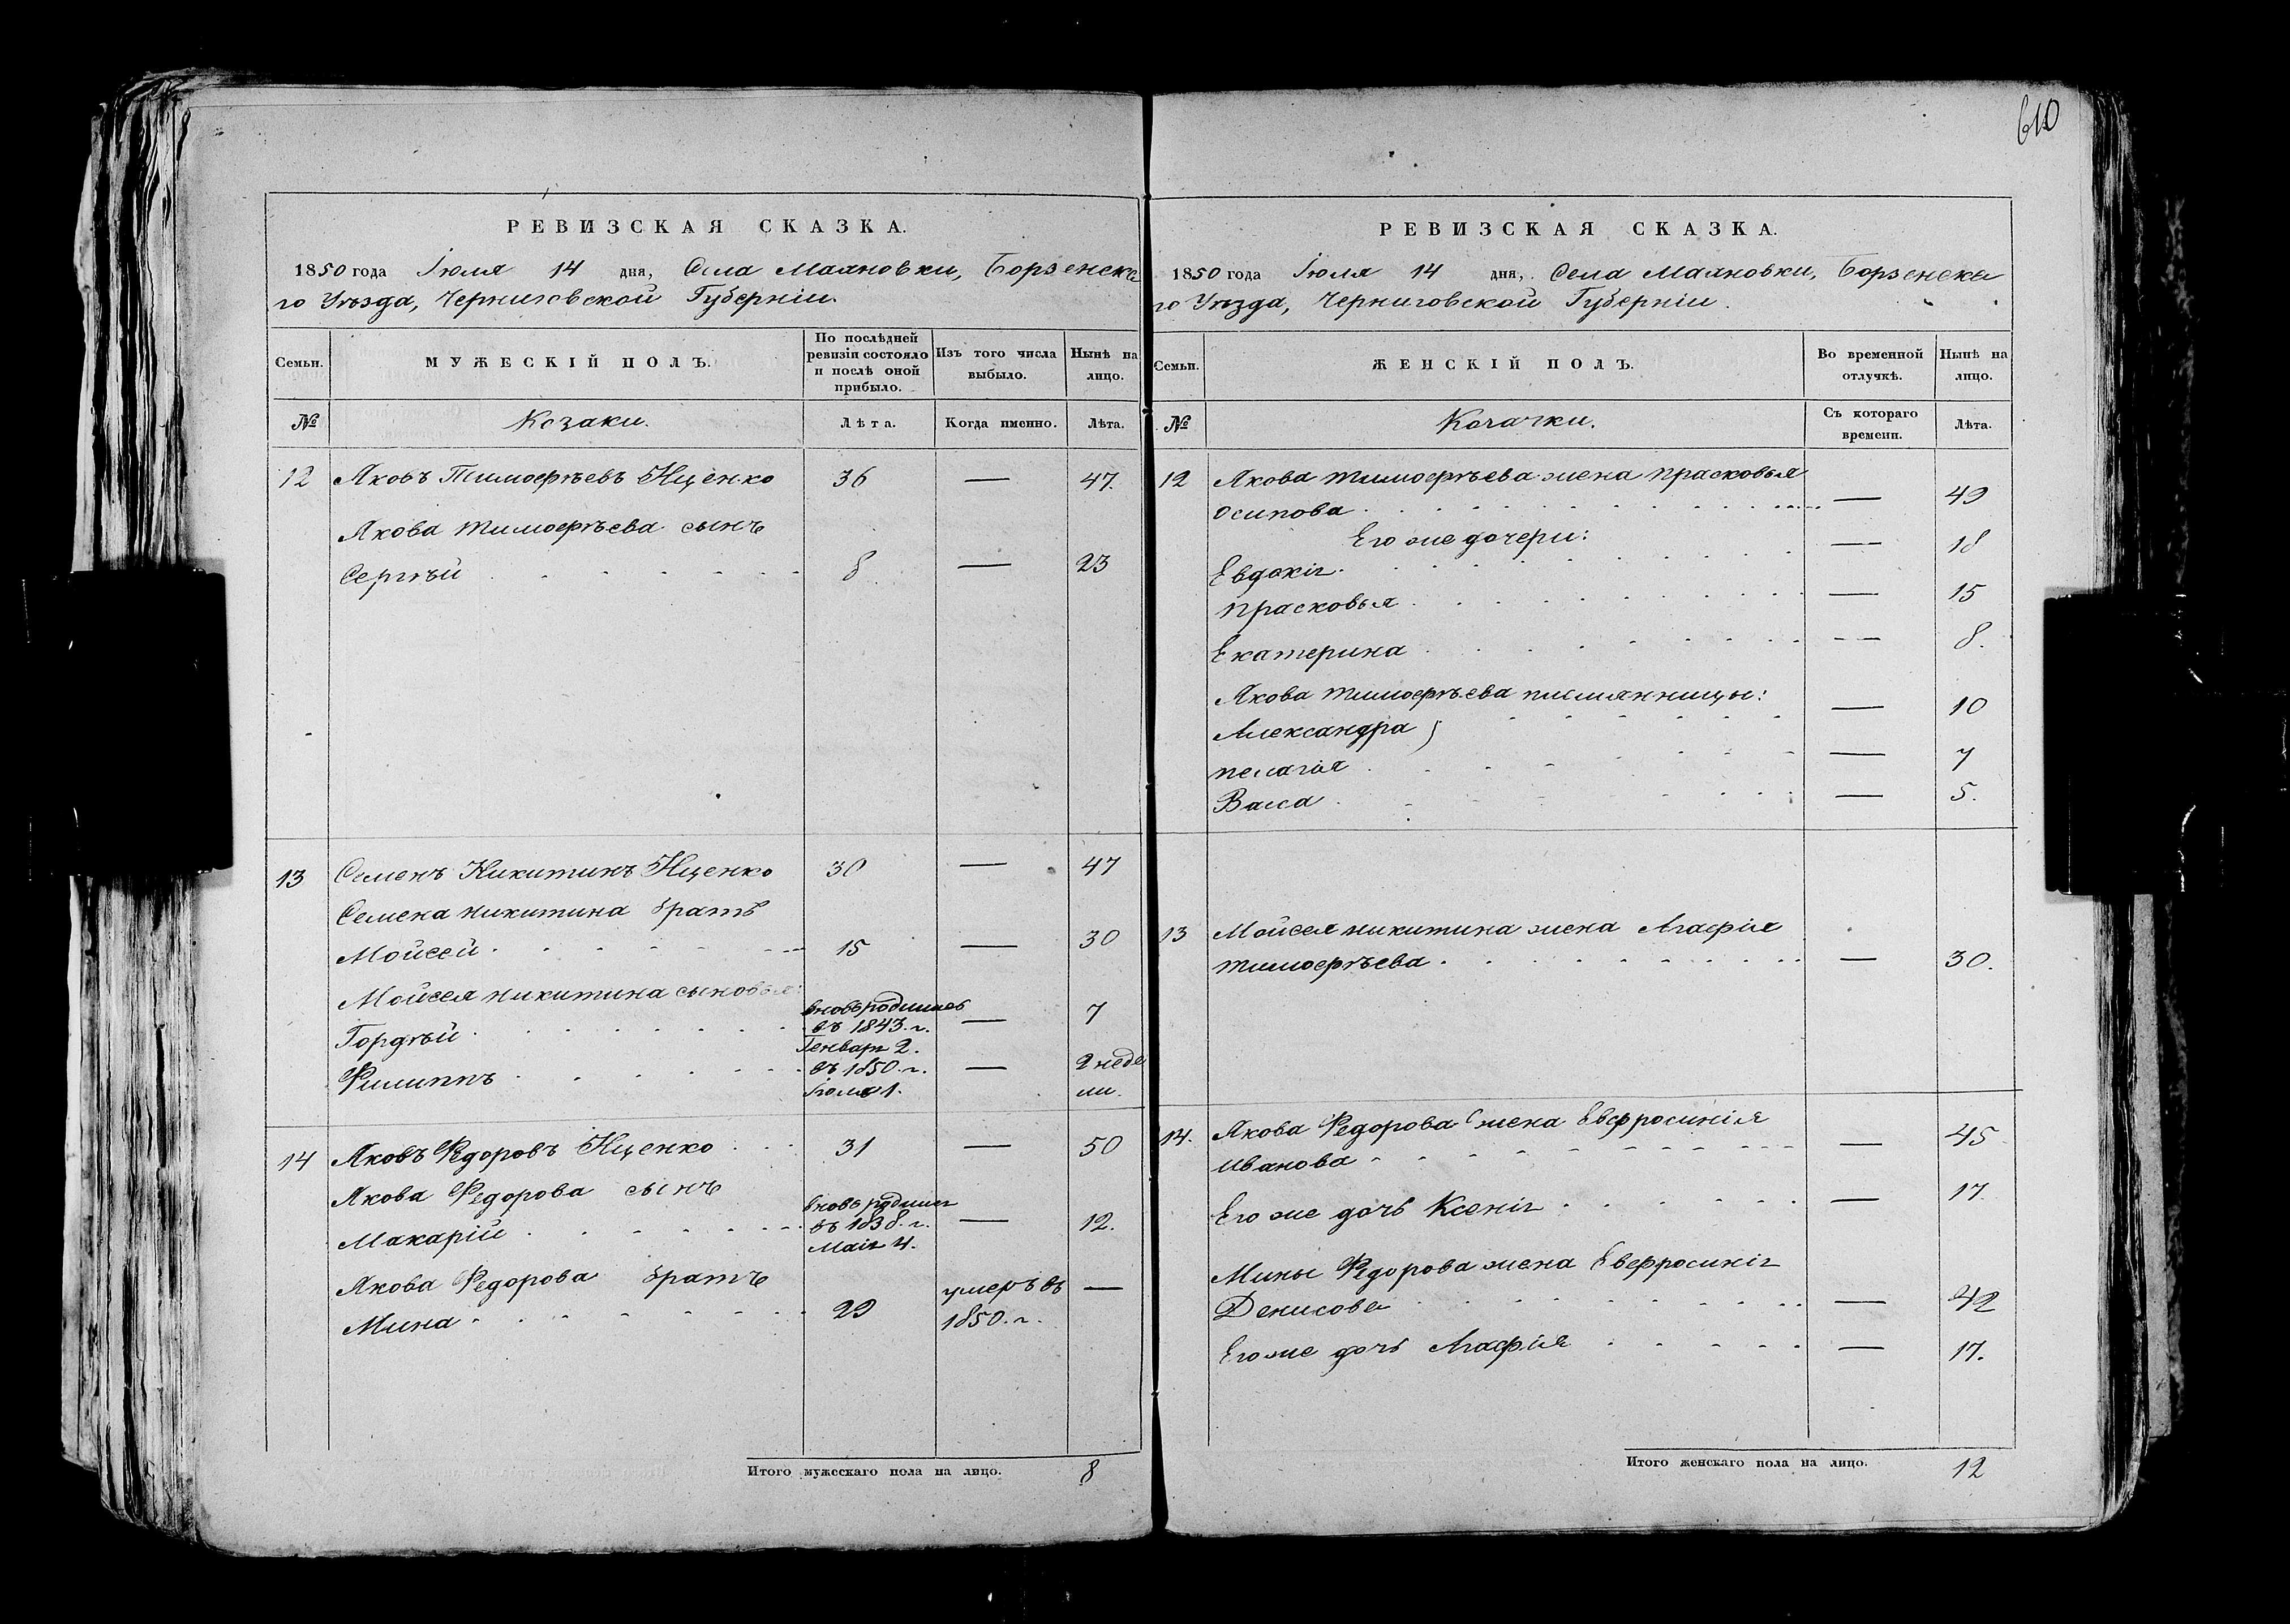 610
РЕВИЗСКАЯ СКАЗКА.
1850 года Іюля 14 дня, Села Маяновки, Борзенска
го Уѣзда, Черниговской Губерніи.
Семьи.
МУЖЕСКІЙ ПОЛЪ.
По послѣдней
ревизіи состояло
и послѣ оной
прибыло.
Изъ того числа
выбыло.
Нынѣ на
лицо.
№ Козаки. Лѣта. Когда именно. Лѣта.
12 Яковъ Тимофѣевъ Ященко 36 — 47.
Якова Тимофѣева сынъ
Сергѣй 8 — 23
13 Семенъ Никитинъ Ященко 30 — 47
Семена Никитина братъ
Мойсей 15 — 30
Мойсея Никитина сыновья:
Гордѣй вновь родился — 7
въ 1843. г.
Генваря 2.
Филиппъ въ 1850. г. — 2 неде
Іюля 1. ли.
14 Яковъ Федоровъ Ященко 31 — 50
Якова Федорова сынъ
Макарій вновь родился — 12.
въ 1838. г.
Маія 4.
Якова Федорова братъ
Мина 29 умеръ въ —
1850. г.
Итого мужескаго пола на лицо. 8
РЕВИЗСКАЯ СКАЗКА.
1850 года Іюля 14 дня, Села Маяновки, Борзенска
го Уѣзда, Черниговской Губерніи.
Семьи.
ЖЕНСКІЙ ПОЛЪ.
Во временной
отлучкѣ.
Нынѣ на
лицо.
№ Козачки. Съ котораго
времени. Лѣта.
12 Якова Тимофѣева жена Прасковья
Осипова — 49
Его же дочери:
Евдокія — 18
Прасковья — 15
Екатерина — 8.
Якова Тимофѣева племянницы:
Александра — 10
Пелагія — 7
Васса — 5.
13 Мойсея Никитина жена Агафія
Тимофѣева — 30.
14. Якова Федорова жена Евфросинія
Иванова — 45
Его же дочь Ксенія — 17
Мины Федорова жена Евфросинія
Денисова — 42
Его же дочь Агафія — 17.
Итого женскаго пола на лицо. 12